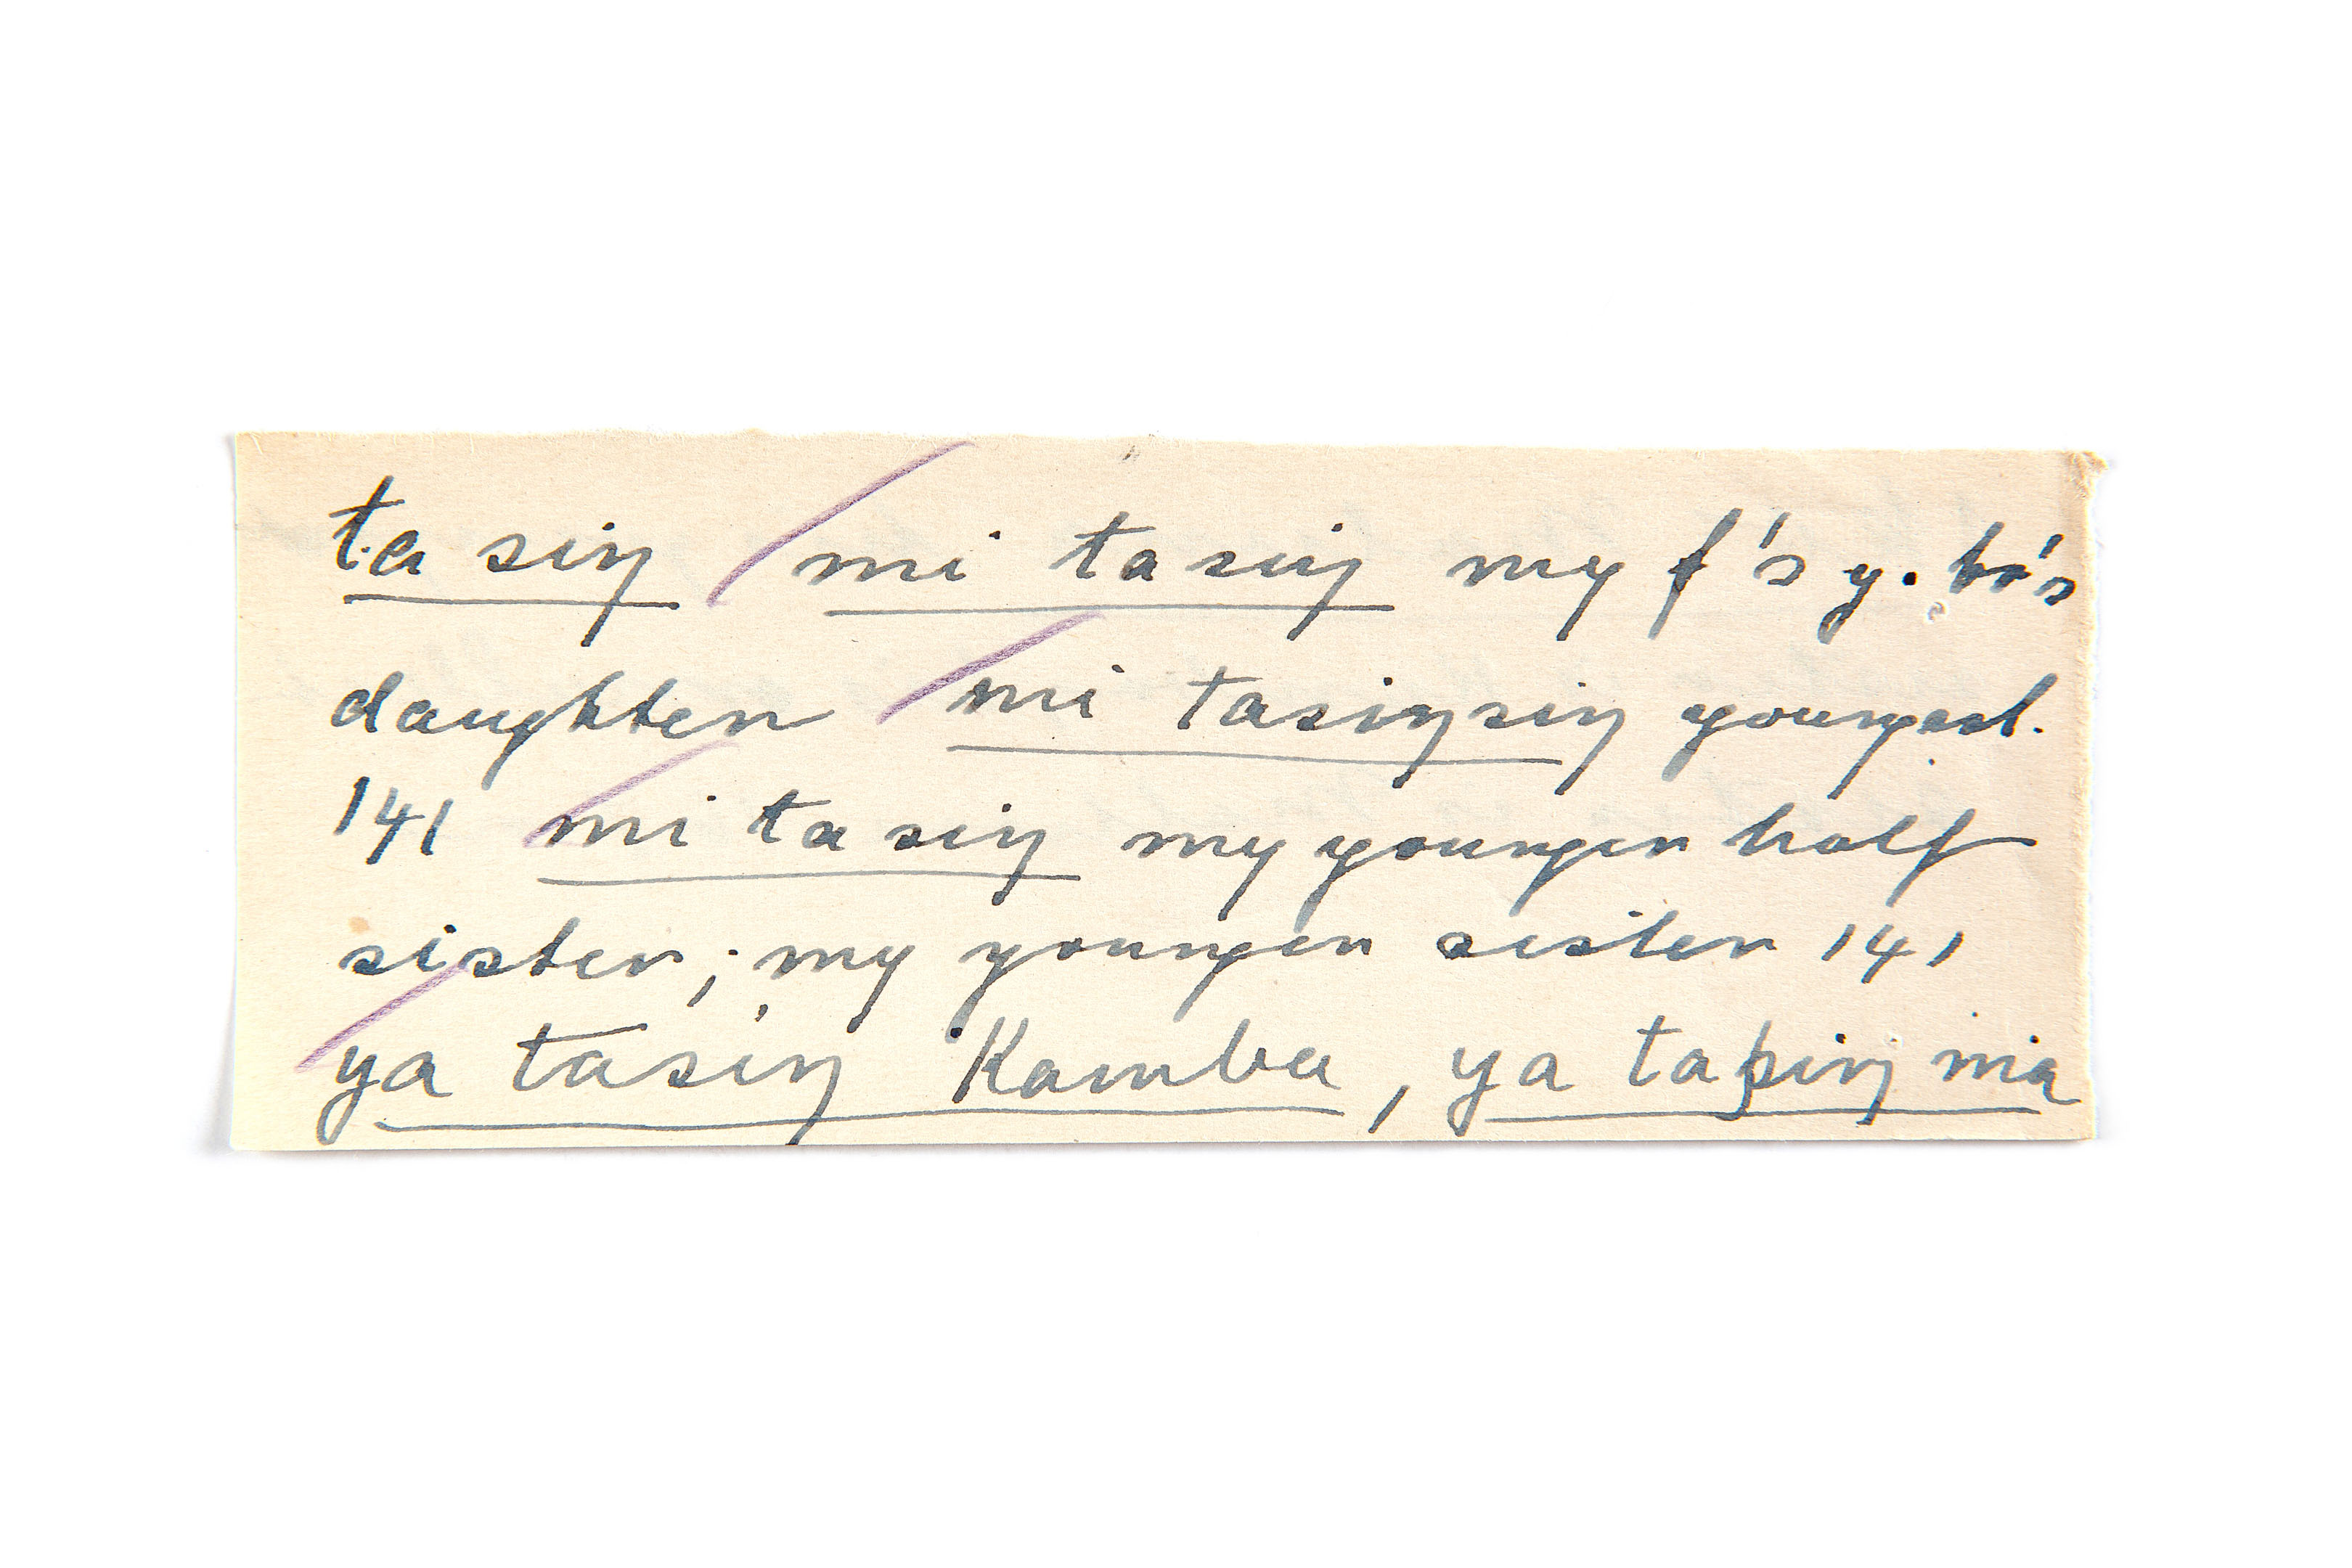 ta siŋ mi ta siŋ my f's y. br's
daughter mi tasiŋsiŋ youngest.
141 mi ta siŋ my younger half
sister; my younger sister 141
ya tasiŋ Kamba, ya tasiŋ mia